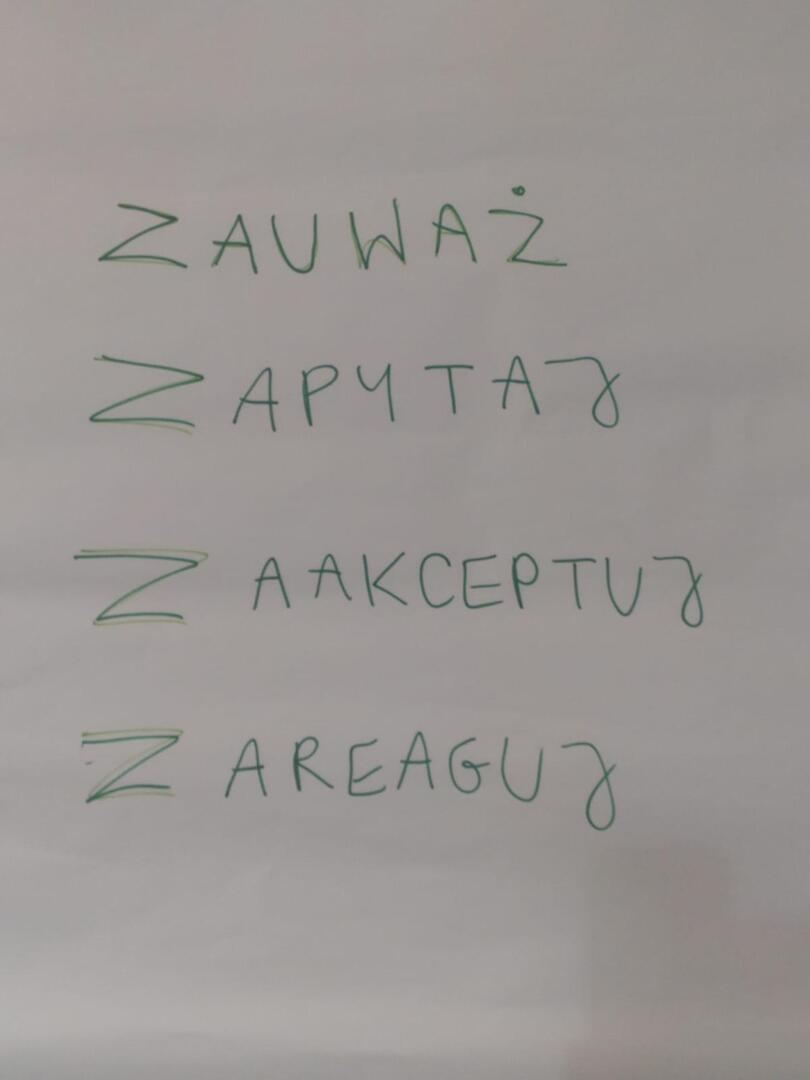 ZAUWAŻ
ZAPYTAJ
ZAAKCEPTUJ
ZAREAGUJ